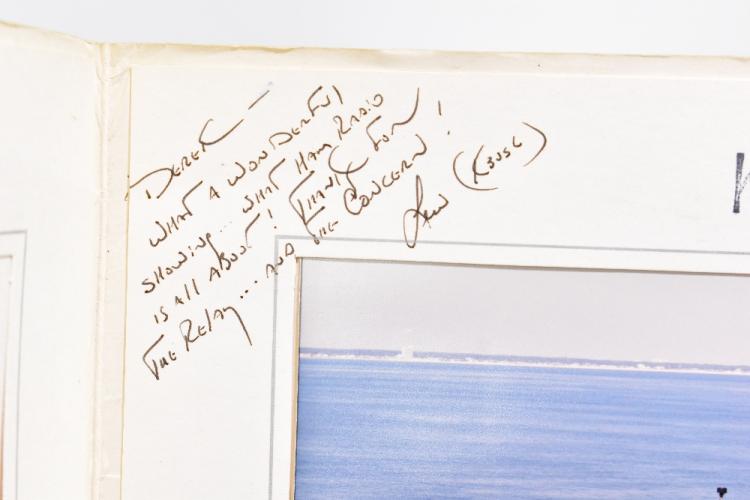 DEREK —
WHAT A WONDERFUL
SHOWING... WHAT HAM RADIO
IS ALL ABOUT! THANX FOR
THE RELAY... AND THE CONCERN!
Lew (K3USG)